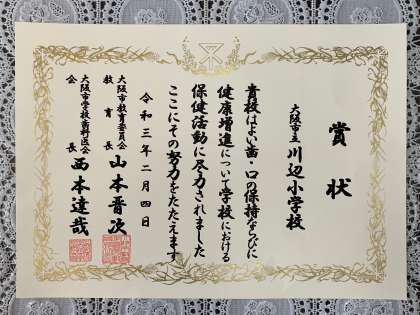 賞状
大阪市立川辺小学校
貴校はよい歯・口の保持ならびに
健康増進について学校における
保健活動に尽力されました
ここにその努力をたたえます
令和三年二月四日
大阪市教育委員会
教育長 山本晋次
大阪市学校歯科医会
会長 西本達哉